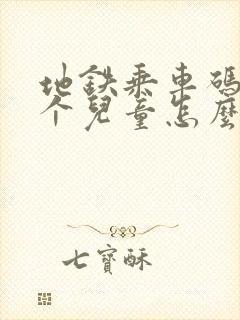 地鉄乗車碼
个兒童怎麼
七寶酥